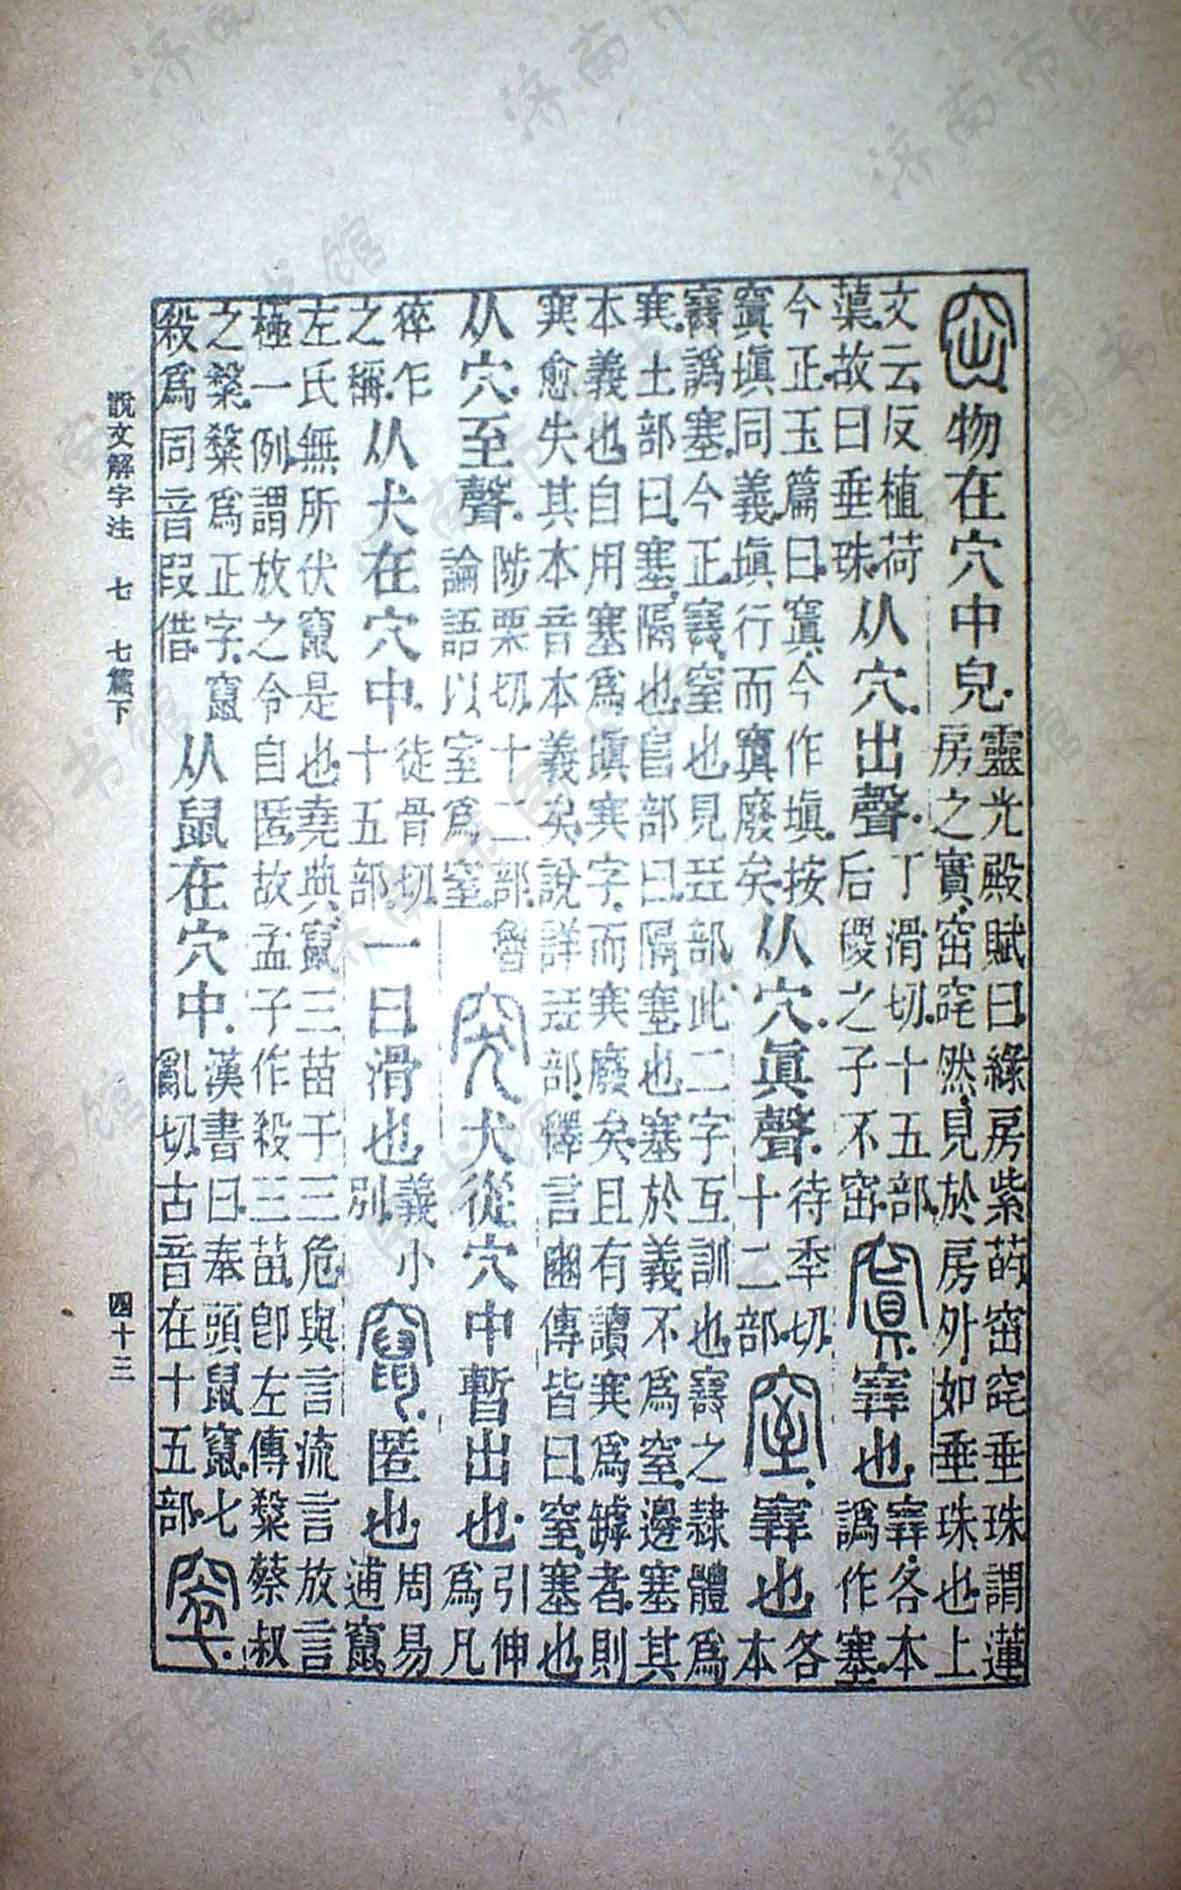 窋物在穴中皃。靈光殿賦曰。綠房紫菂。窋窀垂珠。謂蓮房之實。窋窀然。見於房外。如垂珠也。上
文云。反植荷蕖。故曰垂珠。从穴。出聲。丁滑切。十五部。后稷之子不窋。窴𡫳也。𡫳各本譌作塞。
今正。玉篇曰。窴今作塡。按窴塡同義。塡行而窴廢矣。从穴。眞聲。待秊切。十二部。窒𡫳也。各本
𡫳譌塞。今正。𡫳窒也。見㠭部。此二字互訓也。𡫳之隸體爲𡨄。土部曰。塞。隔也。𨸏部曰。隔塞也。塞於義不爲窒。邊塞其
本義也。自用塞爲塡𡨄字。而𡨄廢矣。且有讀𡨄爲罅者。則𡨄愈失其本音本義矣。說詳㠭部。釋言豳傳皆曰。窒。塞也。
从穴。至聲。陟栗切。十二部。魯論語以室爲窒。突犬從穴中暫出也。引伸爲凡
猝乍之稱。从犬在穴中。徒骨切。十五部。一曰滑也。義小別。竄匿也。周易逋竄
左氏無所伏竄是也。堯典竄三苗于三危。與言流言放言極一例。謂放之令自匿。故孟子作殺三苗。卽左傳䊝蔡叔
之䊝。䊝爲正字。竄殺爲同音叚借。从鼠在穴中。漢書曰。奉頭鼠竄。七亂切。古音在十五部。窣
說文解字注　七　七篇下　四十三